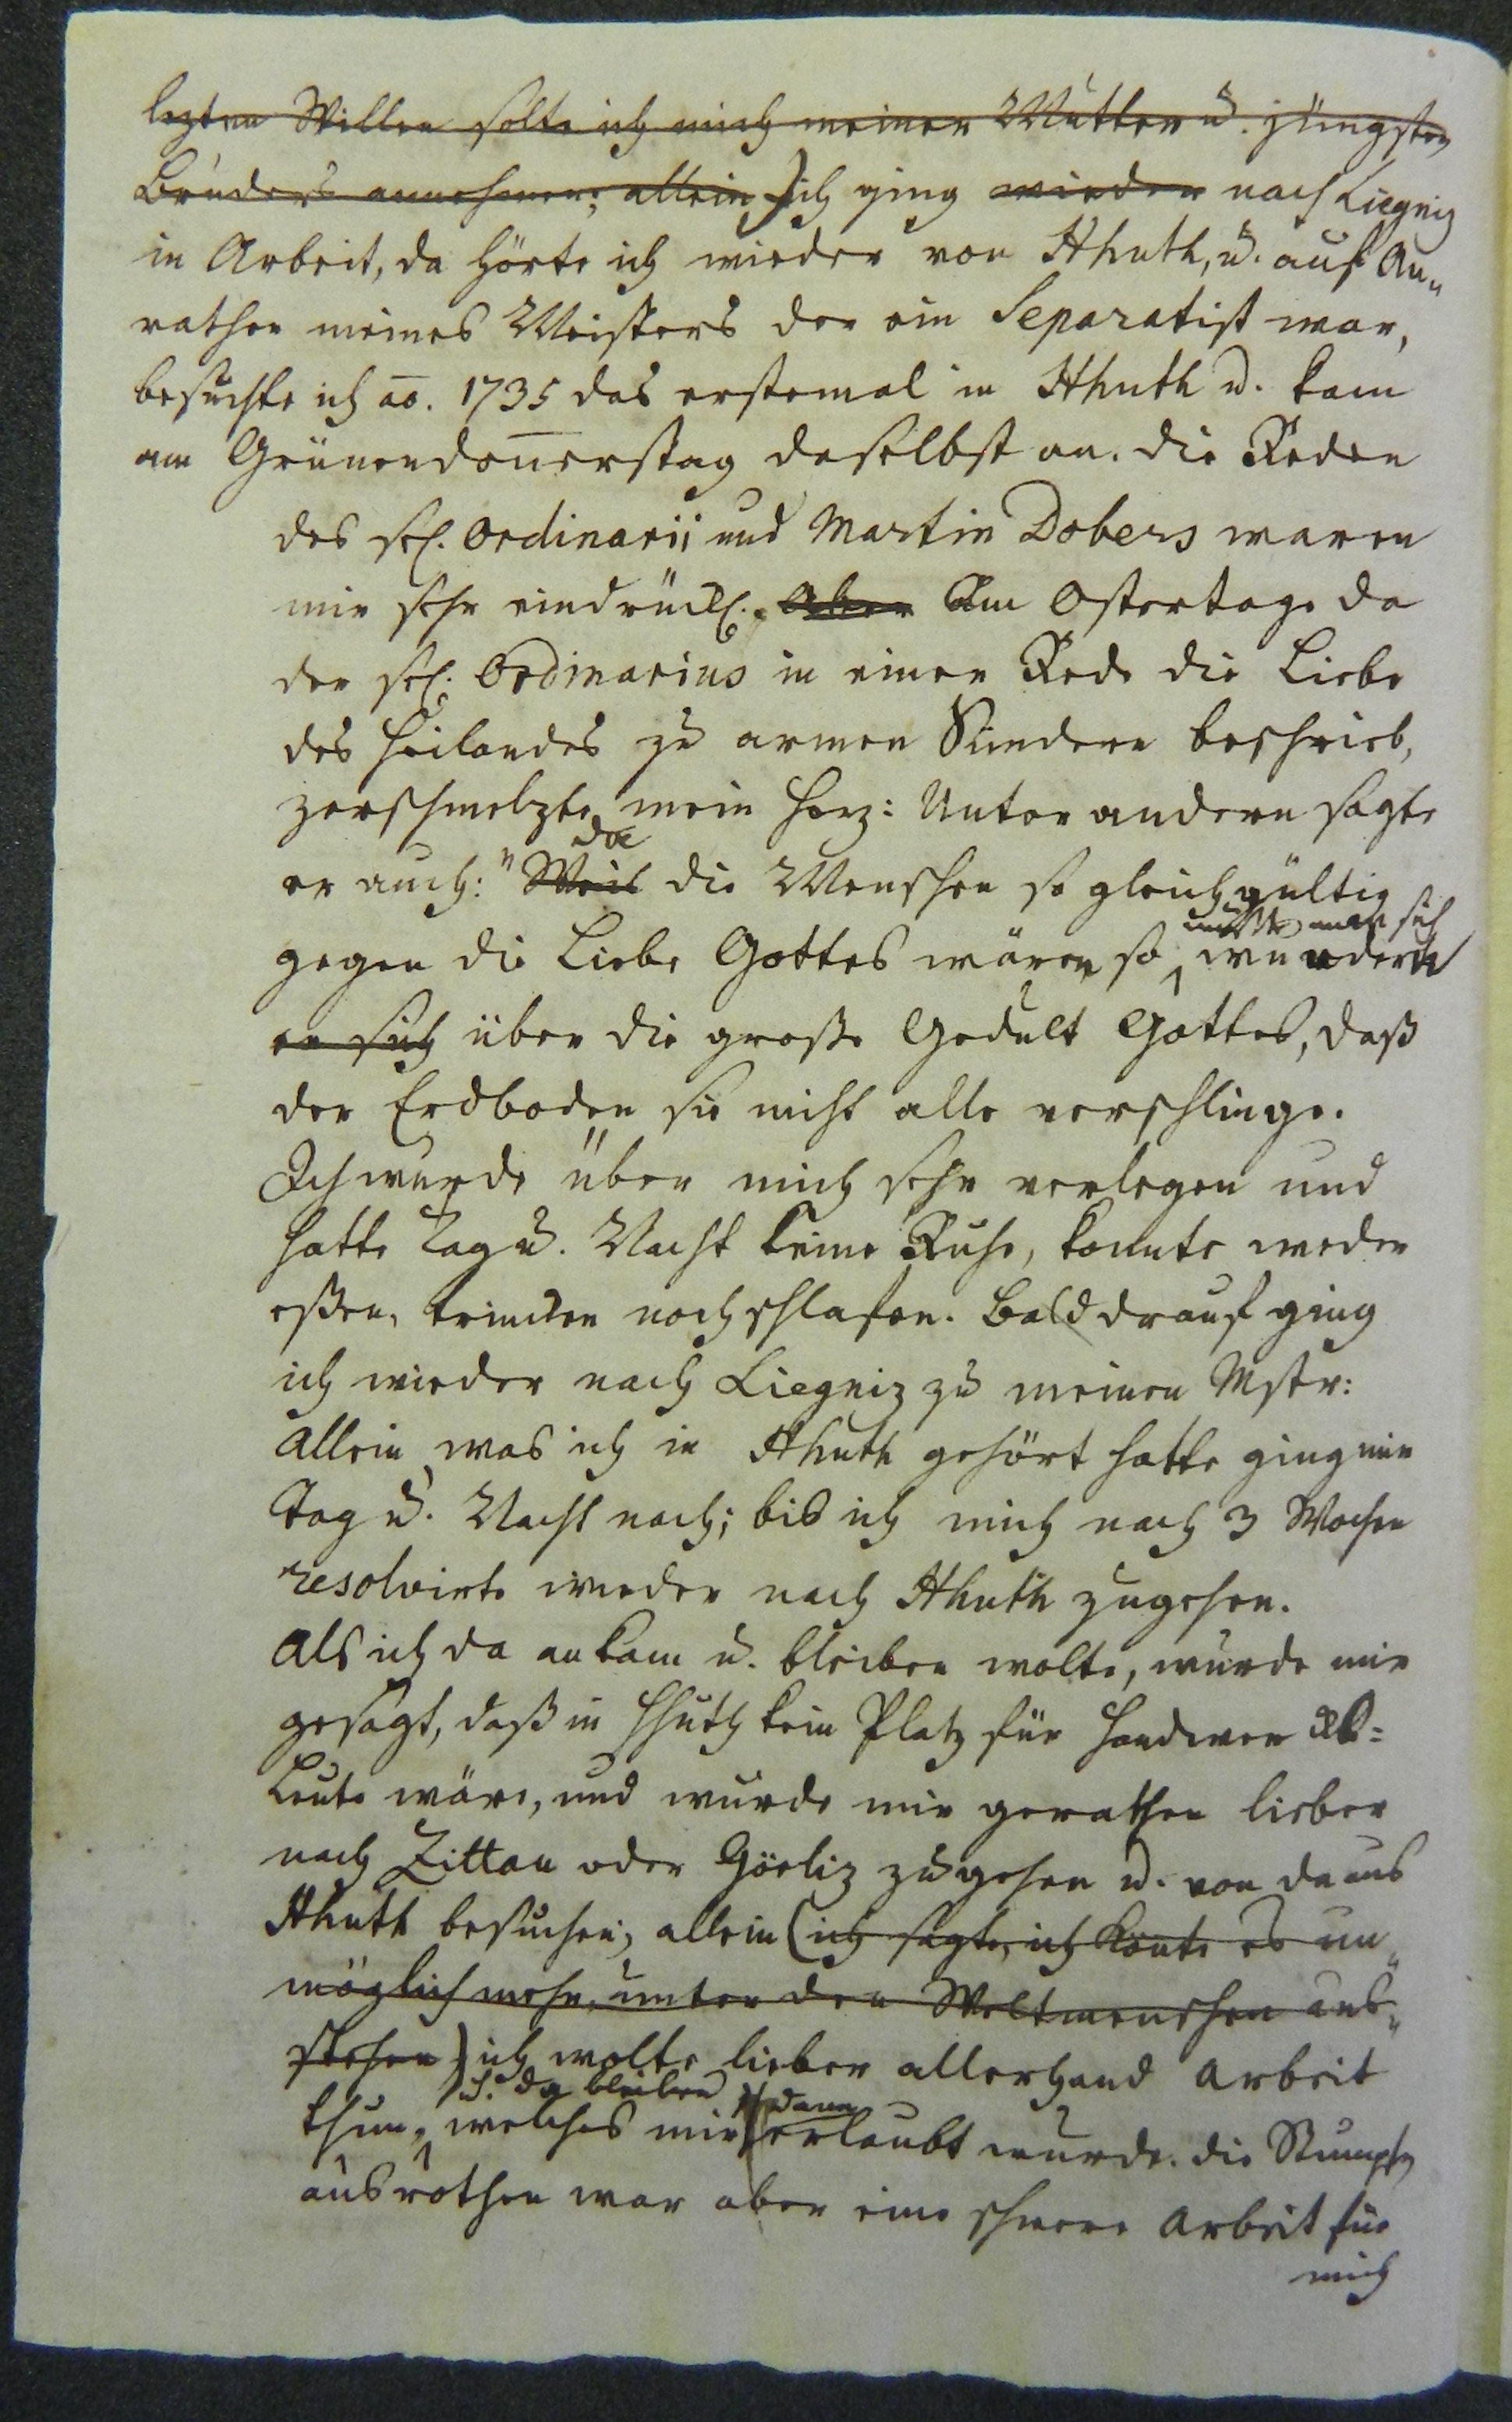 lezten Willen solte ich mich meiner Mutter u. jüngsten
Bruders annehmen; allein) ich ging wieder nach Liegniz
in Arbeit, da hörte ich wieder von Hhuth, u. auf An„
rathen meines Meisters der ein Separatist war,
besuchte ich ao. 1735 das erstemal in Hhuth u. kam
am Grünendonerstag daselbst an. die Reden
des sel. Ordinarii und Martin Dobers waren
mir sehr eindrückl. Aber Am Ostertage da
der sel. Ordinarius in einer Rede die Liebe
des Heilandes zu armen Sündern beschrieb,
zerschmelzte mein Herz: Unter andern sagte
da
er auch: "Weil die Menschen so gleichgültig
müßte man sich
gegen die Liebe Gottes wären so wundern
er sich über die große Gedult Gottes, daß
der Erdboden sie nicht alle verschlinge.
Ich wurde über mich sehr verlegen und
hatte Tag u. Nacht keine Ruhe, konnte weder
eßen, trincken noch schlafen. Bald drauf ging
ich wieder nach Liegniz zu meinen Mstr:
allein was ich in Hhuth gehört hatte ging mir
Tag u. Nacht nach; bis ich mich nach 3 Wochen
resolvirte wieder nach Hhuth zugehen.
Als ich da ankam u. bleiben wolte, wurde mir
gesagt, daß in Hhuth kein Platz für Handwercks=
Leute wäre, und wurde mir gerathen lieber
nach Zittau oder Görliz zu gehen u. von da aus
Hhuth besuchen, allein (ich sagte, ich könte es un„
möglich mehr unter den Weltmenschen aus„
stehen) ich wolte lieber allerhand Arbeit
u. da bleiben dann
thun, welches mir erlaubt wurde. die Stumpfen
ausrothen war aber eine schwere Arbeit für
mich